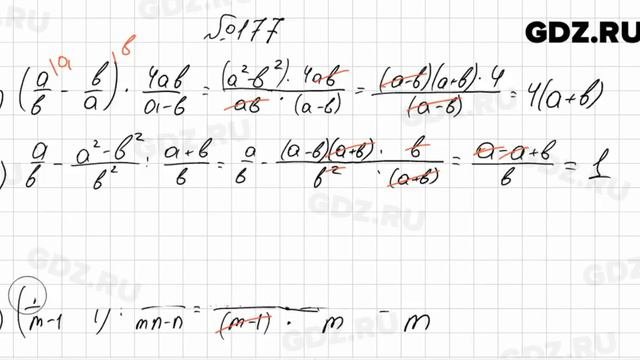 GDZ.RU
№177
) (a/b |a - b/a |b) · 4ab/(a-b) = (a²-b²)·4ab/(ab·(a-b)) = (a-b)(a+b)·4/(a-b) = 4(a+b)
) a/b - (a²-b²)/b² : (a+b)/b = a/b - (a-b)(a+b)·b/(b²·(a+b)) = (a-a+b)/b = 1
) ( /(m-1) 1) : /(mn-n) = /((m-1)· m - m